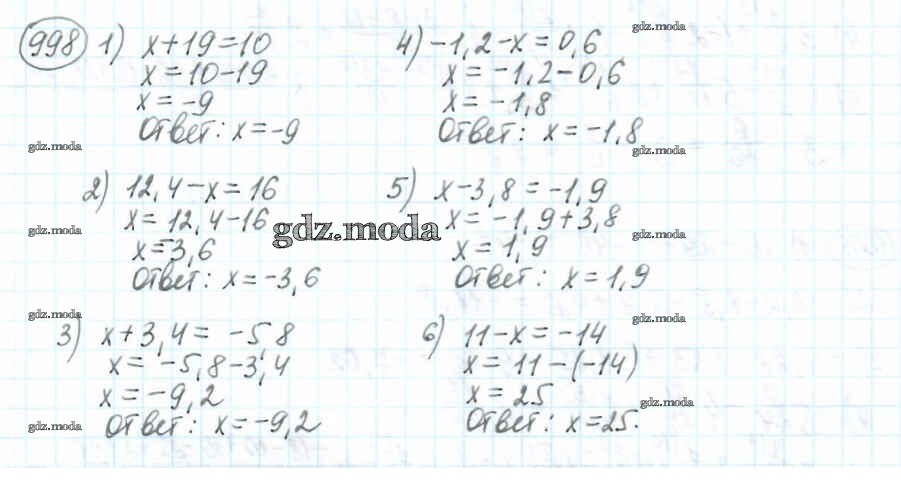 998 1) x+19=10
x=10-19
x=-9
Ответ: x=-9
2) 12,4-x=16
x=12,4-16
x=-3,6
Ответ: x=-3,6
3) x+3,4=-5,8
x=-5,8-3,4
x=-9,2
Ответ: x=-9,2
4) -1,2-x=0,6
x=-1,2-0,6
x=-1,8
Ответ: x=-1,8
5) x-3,8=-1,9
x=-1,9+3,8
x=1,9
Ответ: x=1,9
6) 11-x=-14
x=11-(-14)
x=25
Ответ: x=25.
gdz.moda
gdz.moda
gdz.moda
gdz.moda
gdz.moda
gdz.moda
gdz.moda
gdz.moda
gdz.moda
gdz.moda